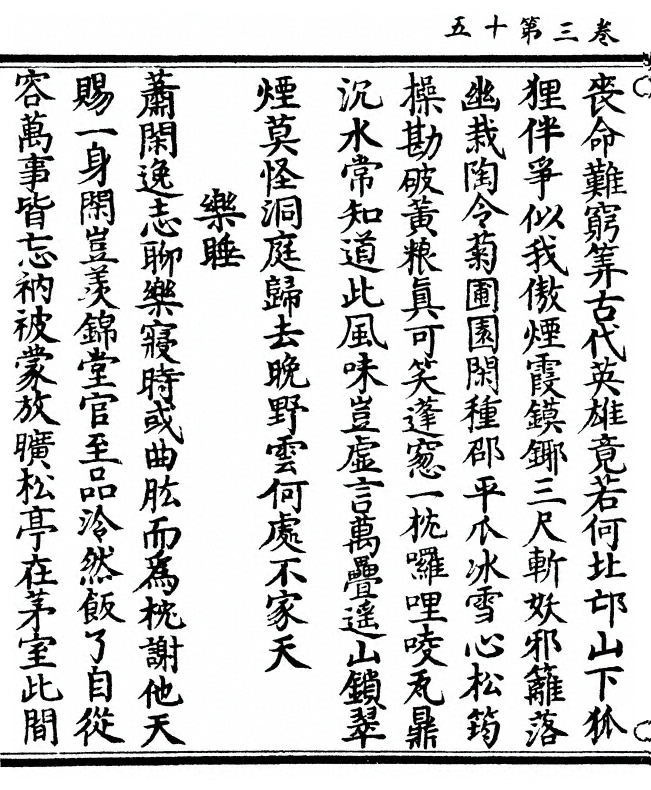 卷三第十五
喪命難窮筭古代英雄竟若何北邙山下狐
狸伴爭似我傲煙霞鏌鋣三尺斬妖邪籬落
幽栽陶令菊圃園閑種邵平瓜冰雪心松筠
操勘破黃粮眞可笑蓬窓一枕囉哩唛瓦鼎
沉水常知道此風味豈虛言萬疊遥山鎖翠
煙莫怪洞庭歸去晚野雲何處不家天
樂睡
蕭閑逸志聊樂寢時或曲肱而為枕謝他天
賜一身閑豈羨錦堂官至品泠然飯了自從
容萬事皆忘衲被蒙放曠松亭在茅室此間